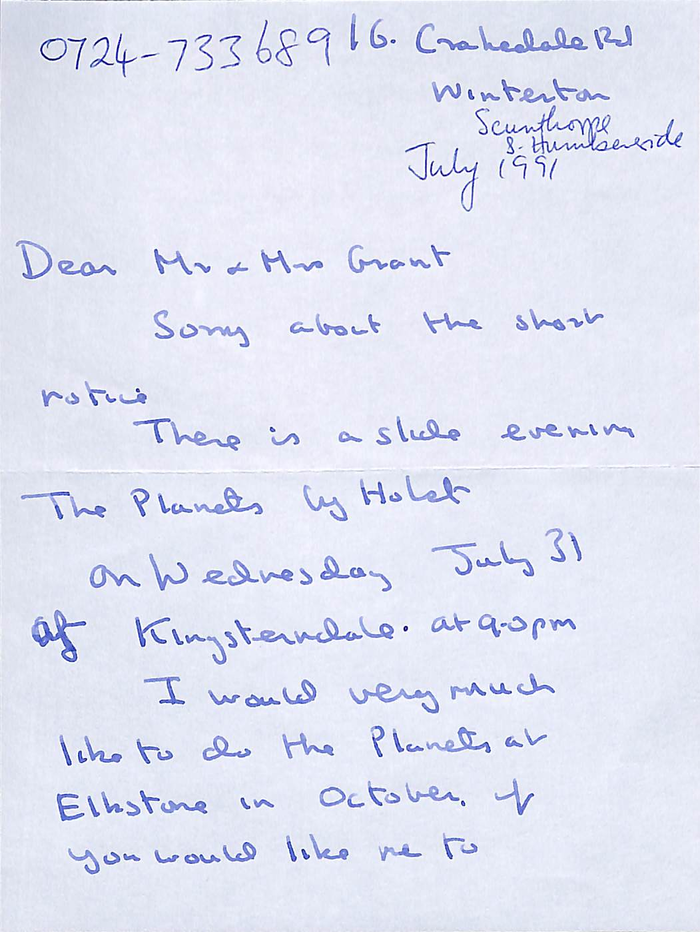 0724-733689 16. Crakedale Rd
Winterton
Scunthorpe
S. Humberside
July 1991
Dear Mr & Mrs Grant
Sorry about the short
notice
There is a slide evening
The Planets by Holst
on Wednesday July 31
at Kingsterndale. at 9-0pm
I would very much
like to do the Planets at
Elkstone in October, if
you would like me to